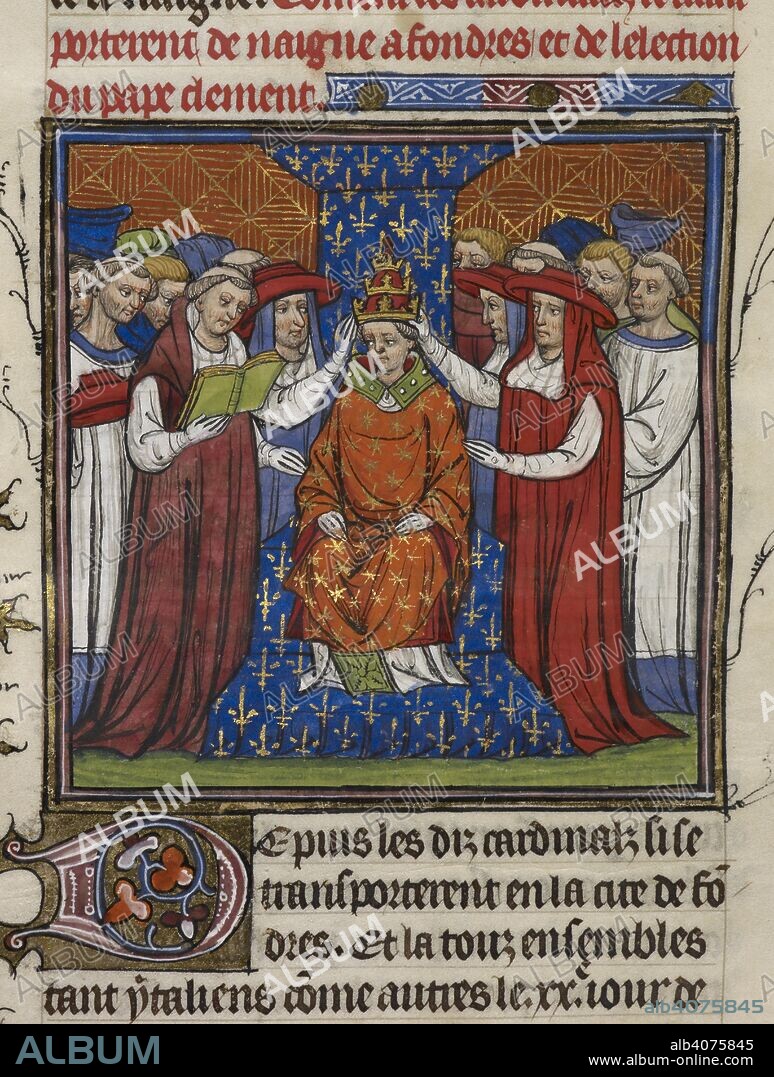 porterent de naigne a fondres et de lelection
du pape clement.
Epuis les diz cardinalz si se
transporterent en la cite de fō
dres. Et la touz ensembles
tant ytaliens cōme autres le .xx.e iour de
ALBUM
alb4075845
ALBUM
alb4075845
www.album-online.com